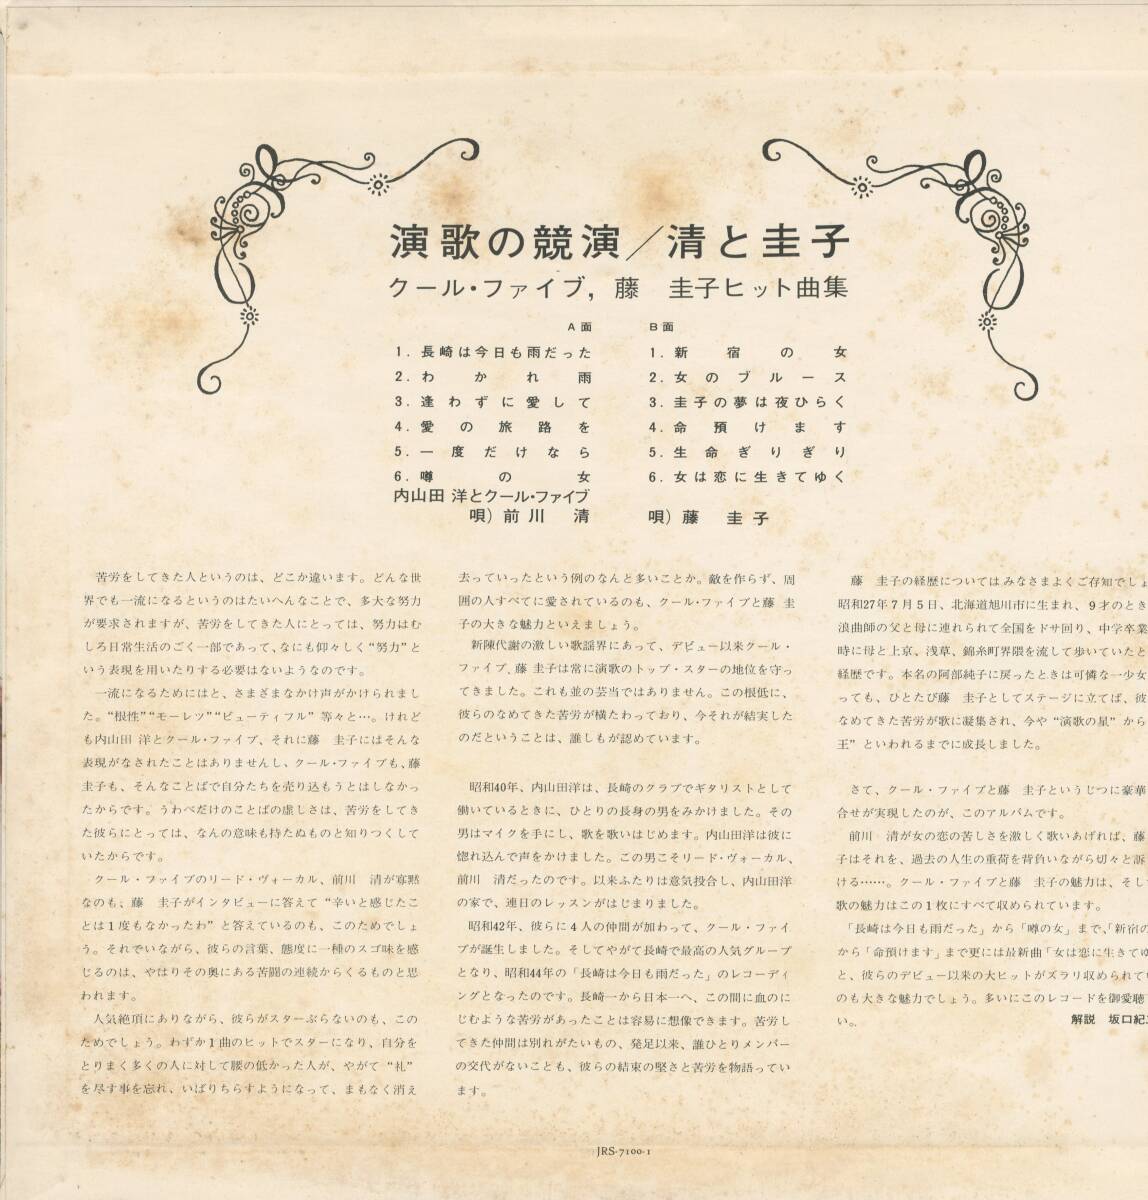 演歌の競演／清と圭子
クール・ファイブ，藤　圭子ヒット曲集
A面
1. 長崎は今日も雨だった
2. わかれ雨
3. 逢わずに愛して
4. 愛の旅路を
5. 一度だけなら
6. 噂の女
内山田 洋とクール・ファイブ
唄）前川　清
B面
1. 新宿の女
2. 女のブルース
3. 圭子の夢は夜ひらく
4. 命預けます
5. 生命ぎりぎり
6. 女は恋に生きてゆく
唄）藤　圭子
苦労をしてきた人というのは、どこか違います。どんな世
界でも一流になるというのはたいへんなことで、多大な努力
が要求されますが、苦労をしてきた人にとっては、努力はむ
しろ日常生活のごく一部であって、なにも仰々しく“努力”と
いう表現を用いたりする必要はないようなのです。
一流になるためにはと、さまざまなかけ声がかけられまし
た。“根性”“モーレツ”“ビューティフル”等々と…。けれど
も内山田 洋とクール・ファイブ、それに藤　圭子にはそんな
表現がなされたことはありませんし、クール・ファイブも、藤
圭子も、そんなことばで自分たちを売り込もうとはしなかっ
たからです。うわべだけのことばの虚しさは、苦労をしてき
た彼らにとっては、なんの意味も持たぬものと知りつくして
いたからです。
クール・ファイブのリード・ヴォーカル、前川　清が寡黙
なのも、藤　圭子がインタビューに答えて“辛いと感じたこ
とは1度もなかったわ”と答えているのも、このためでしょ
う。それでいながら、彼らの言葉、態度に一種のスゴ味を感
じるのは、やはりその奥にある苦闘の連続からくるものと思
われます。
人気絶頂にありながら、彼らがスターぶらないのも、この
ためでしょう。わずか1曲のヒットでスターになり、自分を
とりまく多くの人に対して腰の低かった人が、やがて“礼”
を尽す事を忘れ、いばりちらすようになって、まもなく消え
去っていったという例のなんと多いことか。敵を作らず、周
囲の人すべてに愛されているのも、クール・ファイブと藤 圭
子の大きな魅力といえましょう。
新陳代謝の激しい歌謡界にあって、デビュー以来クール・
ファイブ、藤 圭子は常に演歌のトップ・スターの地位を守っ
てきました。これも並の芸当ではありません。この根低に、
彼らのなめてきた苦労が横たわっており、今それが結実した
のだということは、誰しもが認めています。
昭和40年、内山田洋は、長崎のクラブでギタリストとして
働いているときに、ひとりの長身の男をみかけました。その
男はマイクを手にし、歌を歌いはじめます。内山田洋は彼に
惚れ込んで声をかけました。この男こそリード・ヴォーカル、
前川　清だったのです。以来ふたりは意気投合し、内山田洋
の家で、連日のレッスンがはじまりました。
昭和42年、彼らに4人の仲間が加わって、クール・ファイ
ブが誕生しました。そしてやがて長崎で最高の人気グループ
となり、昭和44年の「長崎は今日も雨だった」のレコーディ
ングとなったのです。長崎一から日本一へ、この間に血のに
じむような苦労があったことは容易に想像できます。苦労し
てきた仲間は別れがたいもの、発足以来、誰ひとりメンバー
の交代がないことも、彼らの結束の堅さと苦労を物語ってい
ます。
藤　圭子の経歴についてはみなさまよくご存知でしょ
昭和27年7月5日、北海道旭川市に生まれ、9才のとき
浪曲師の父と母に連れられて全国をドサ回り、中学卒業
時に母と上京、浅草、錦糸町界隈を流して歩いていたと
経歴です。本名の阿部純子に戻ったときは可憐な一少女
っても、ひとたび藤　圭子としてステージに立てば、彼
なめてきた苦労が歌に凝集され、今や“演歌の星”から
王”といわれるまでに成長しました。
さて、クール・ファイブと藤　圭子というじつに豪華
合せが実現したのが、このアルバムです。
前川　清が女の恋の苦しさを激しく歌いあげれば、藤
子はそれを、過去の人生の重荷を背負いながら切々と訴
ける……。クール・ファイブと藤　圭子の魅力は、そし
歌の魅力はこの1枚にすべて収められています。
「長崎は今日も雨だった」から「噂の女」まで、「新宿の
から「命預けます」まで更には最新曲「女は恋に生きてゆ
と、彼らのデビュー以来の大ヒットがズラリ収められてい
のも大きな魅力でしょう。多いにこのレコードを御愛聴
い。
解説　坂口紀
JRS-7100-1